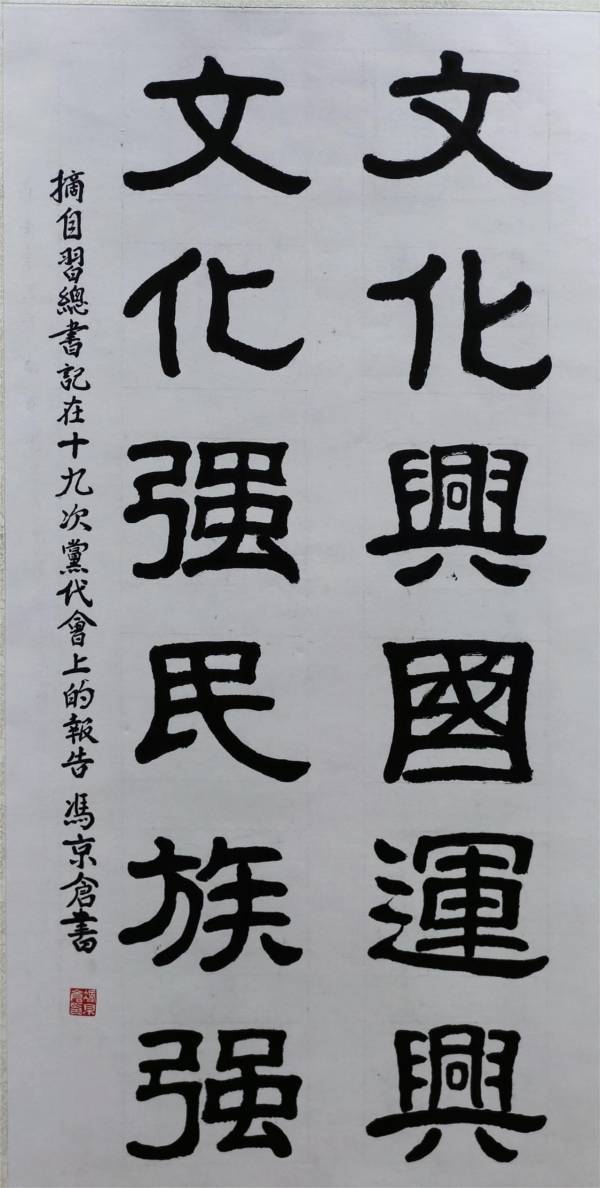 文化興國運興
文化强民族强
摘自習總書記在十九次黨代會上的報告 馮京倉書